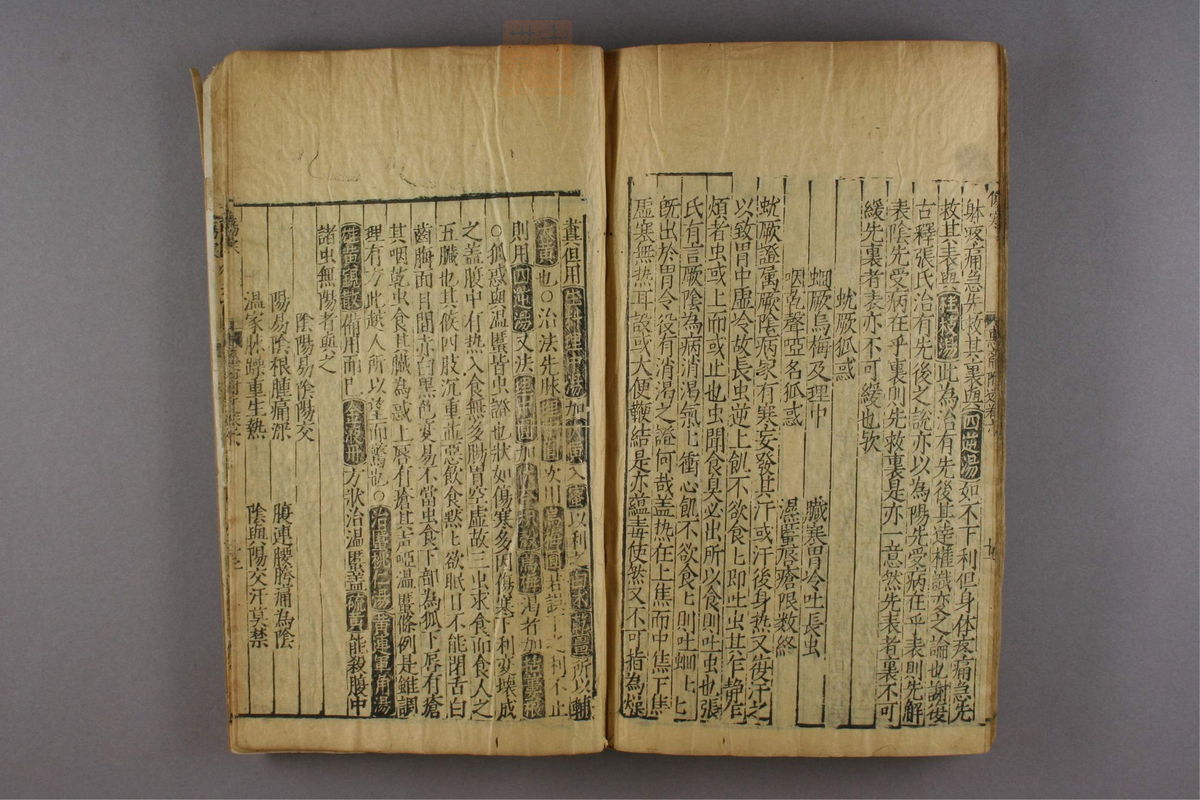 躰疼痛急先救其裏與四逆湯如不下利但身体疼痛急先
救其表與桂枝湯此為治有先後其達權識变之論也謝復
古釋張氏治有先後之說亦以為陽先受病在乎表則先解
表陰先受病在乎裏則先救裏是亦一意然先表者裏不可
緩先裏者表亦不可緩也欤
蚘厥狐惑
蛔厥烏梅及理中 臟寒胃冷吐長虫
咽乾聲啞名狐惑 濕䘌唇瘡限數終
蚘厥證属厥陰病家有寒妄發其汗或汗後身热又復汗之
以致胃中虚冷故長虫逆上飢不欲食上即吐出其乍静乍
煩者虫或上而或止也虫聞食臭必出所以食則吐虫也張
氏有言厥陰為病消渴氣上衝心飢不欲食上則吐蛔上上
既出於胃今復有消渴之證何哉盖热在上焦而中焦下焦
虚寒無热耳設或大便鞕結是亦蘊毒使然又不可指為燥
糞但用 湯加大黄入蜜以利之 所以輔
大黄也○治法先服理中 次用烏梅圓若誤下之利不止
則用四逆湯又法理中圓加 烏梅渴者加栝蔞根
○狐惑與温䘌皆虫證也状如傷寒多因傷寒下利变壊成
之盖腹中有热入食無多腸胃空虚故三虫求食而食人之
五臓也其候四肢沉重悪飲食黙上欲眠目不能閉舌白
齒晦面目間赤白黒 变易不常虫食下部為狐下唇有瘡
其咽乾虫食其臓為惑上唇有瘡其声啞温䘌條例是錐調
理有方此越人所以望而驚也○治䘌桃仁湯黄連犀角湯
雄黄鋭散備用而已金液丹方状治温䘌盖硫黄能殺腹中
諸虫無陽者與之
陰陽易陰陽交
陽易陰根腫痛深 腹連腰胯痛為陰
温家脉躁重生熱 陰與陽交汗莫禁